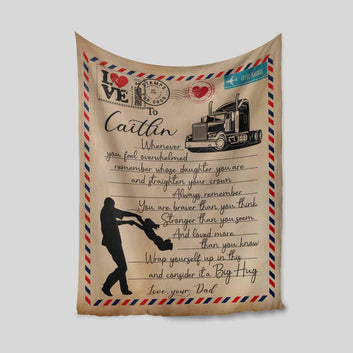 LOVE
AIR MAIL
To
Caitlin
Whenever
you feel overwhelmed
remember whose daughter you are
and straighten your crown
Always remember
You are braver than you think
Stronger than you seem
And loved more
than you know
Wrap yourself up in this
and consider it a Big Hug
Love, your Dad